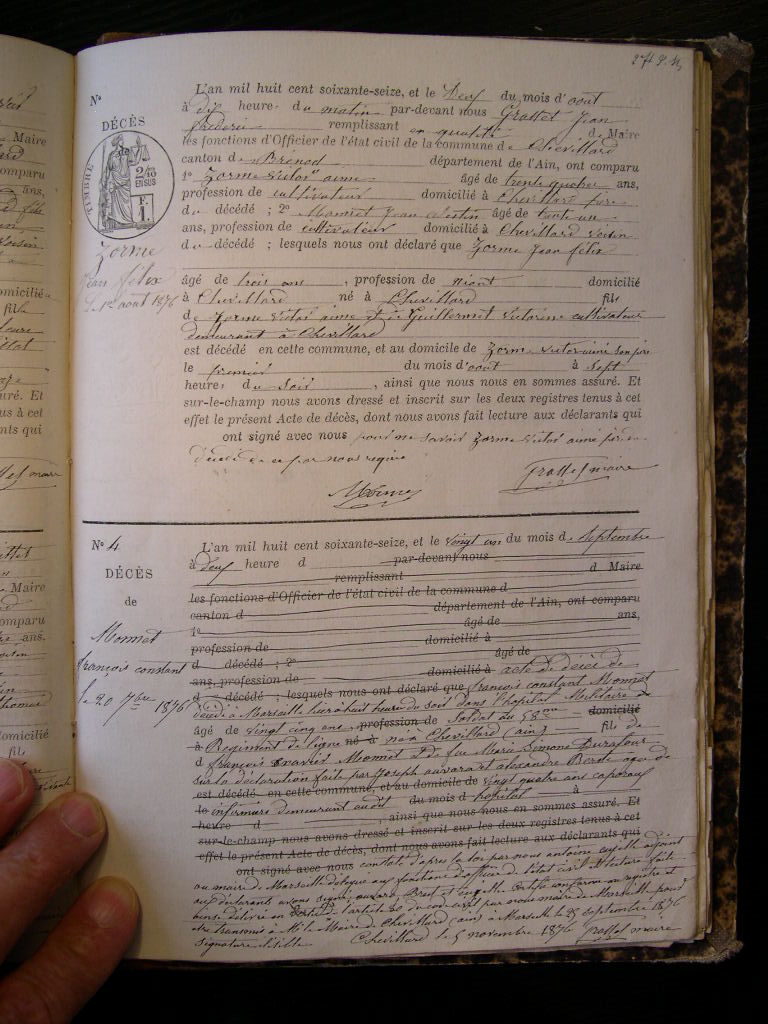 N°
DÉCÈS
TIMBRE
2/10
EN SUS
F.
1.
Zorme
jean félix
le 1er aout 1876
L'an mil huit cent soixante-seize, et le Deux du mois d'aout
à dix heures du matin par-devant nous Grosset Jean
frederic remplissant en qualité de Maire
les fonctions d'Officier de l'état civil de la commune de Chevillard
canton de Brénod département de l'Ain, ont comparu
1° Zorme victor aimé âgé de trente quatre ans,
profession de cultivateur domicilié à Chevillard père
du décédé ; 2° Monnet Jean âgé de trente un
ans, profession de cultivateur domicilié à Chevillard voisin
du décédé ; lesquels nous ont déclaré que Zorme Jean félix
âgé de trois ans, profession de néant domicilié
à Chevillard né à Chevillard fils
de Zorme victor aimé et de Guillermet victorine cultivateurs
demeurant à Chevillard
est décédé en cette commune, et au domicile de Zorme victor aimé son père
le premier du mois d'aout à sept
heures du soir, ainsi que nous nous en sommes assuré. Et
sur-le-champ nous avons dressé et inscrit sur les deux registres tenus à cet
effet le présent Acte de décès, dont nous avons fait lecture aux déclarants qui
ont signé avec nous Zorme victor aimé père du
décédé de ce par nous requis
Grosset maire
N° 4
DÉCÈS
de
Monnet
françois constant
le 20 7bre 1876
L'an mil huit cent soixante-seize, et le vingt un du mois de Septembre
à deux heure d par-devant nous
remplissant d Maire
les fonctions d'Officier de l'état civil de la commune d
canton d département de l'Ain, ont comparu
1° âgé de ans,
profession de domicilié à
d décédé ; 2° âgé de
ans, profession de domicilié à acte de décès de
d décédé ; lesquels nous ont déclaré que françois constant Monnet
décédé à Marseille hier à huit heures du soir dans l'hopital Militaire
âgé de vingt cinq ans, profession de Soldat au 58me domicilié
à Regiment de ligne né à né à Chevillard (ain) fils de
d françois xavier Monnet & de feu Marie Simone Durafour
sur la déclaration faite par Joseph et alexandre
est décédé en cette commune, et au domicile de vingt quatre ans caporaux
le infirmiers demeurant audit du mois d hopital à
heure d , ainsi que nous nous en sommes assuré. Et
sur-le-champ nous avons dressé et inscrit sur les deux registres tenus à cet
effet le présent Acte de décès, dont nous avons fait lecture aux déclarants qui
ont signé avec nous constaté d'après la loi par nous antoine adjoint
au maire de Marseille délégué aux fonctions d'officier de l'état civil et lecture faite
aux déclarants avons signé Certifié conforme au registre et
délivré en l'article 80 du code civil par nous maire de Marseille pour
etre transmis à Mr le Maire de Chevillard (ain) à Marseille le 25 septembre 1876
signature illisible Chevillard le 5 novembre 1876 Grosset maire